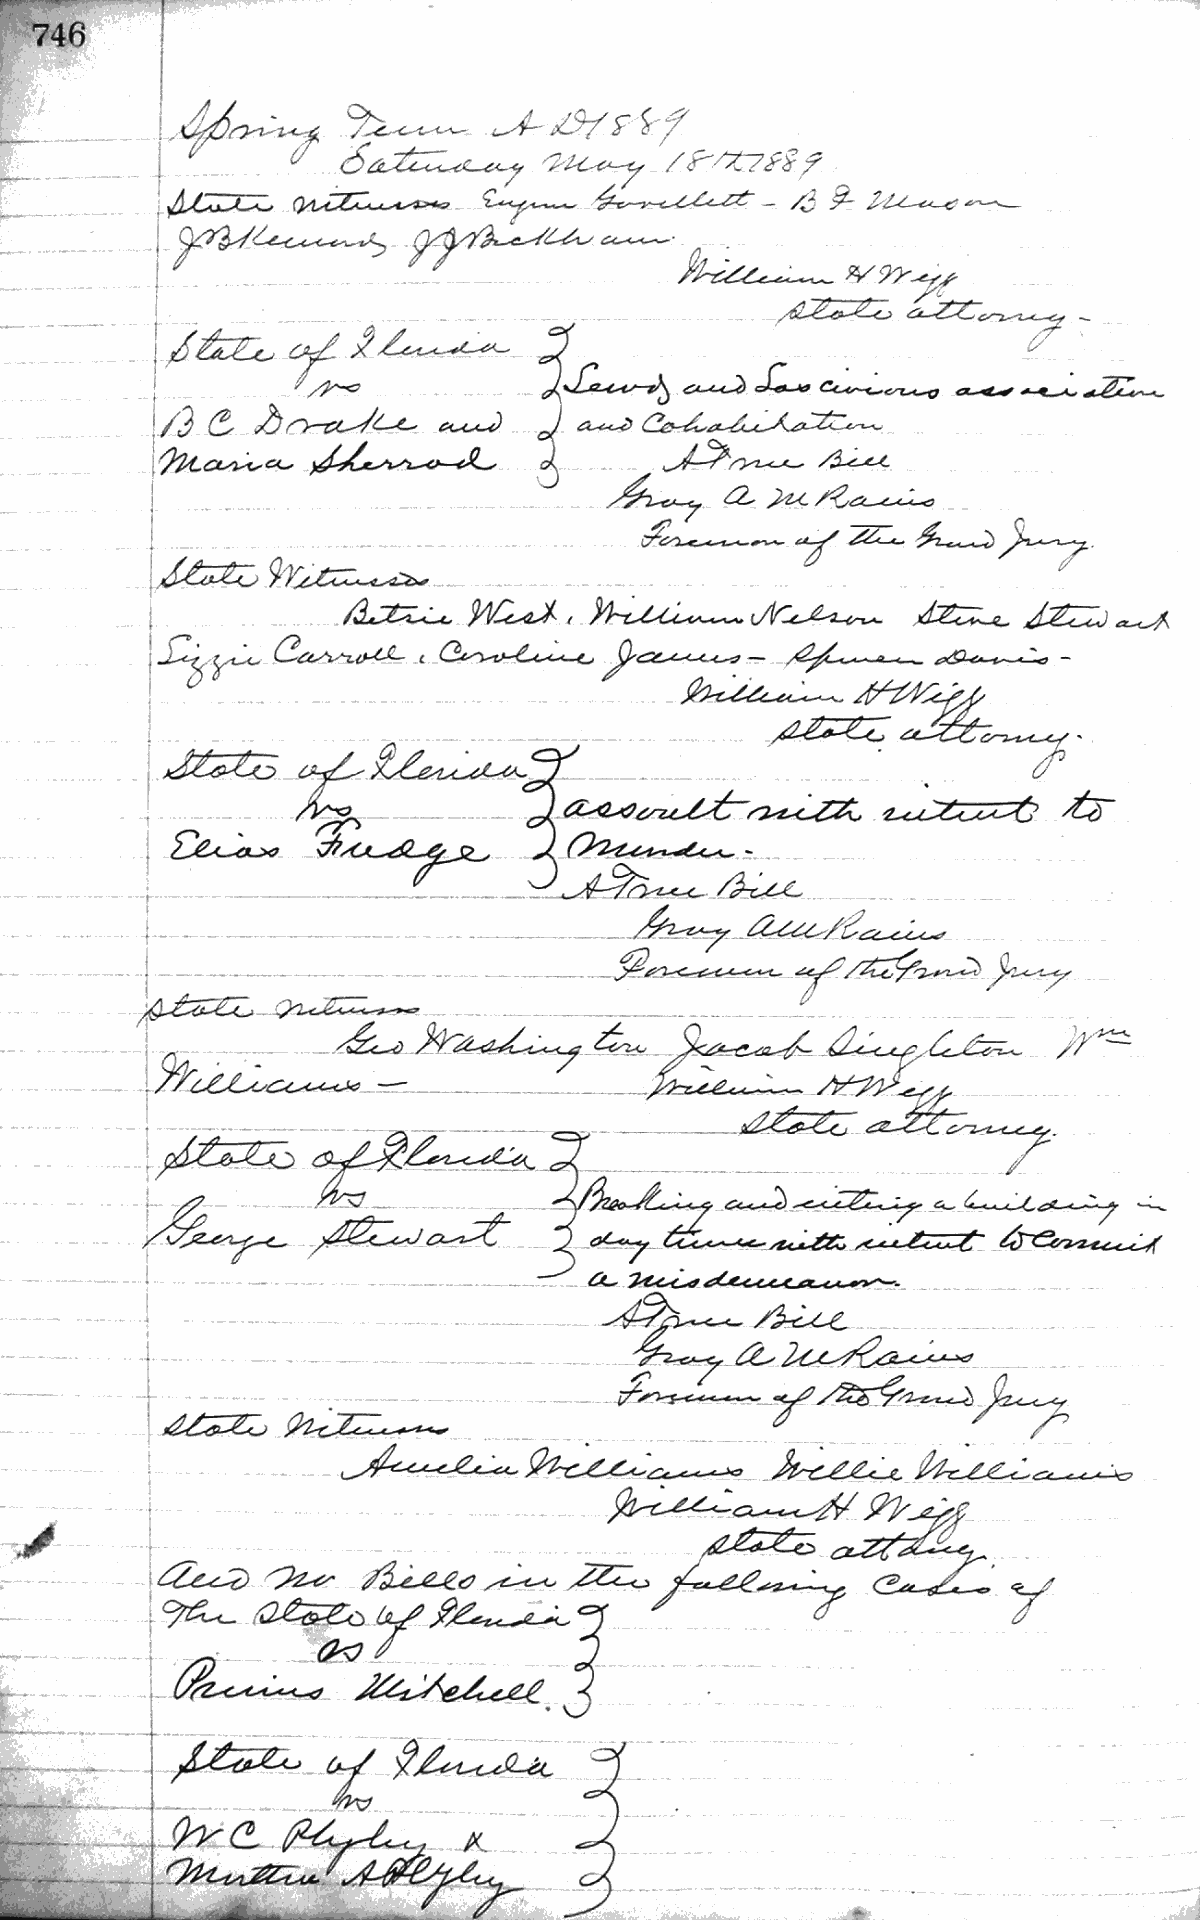 746
Spring Term A D 1889
Saturday May 18th 1889
State witnesses Eugene Gorellett - B F Mason
J B Kennard, J J Beckham
William H Wigg
state attorney -
State of Florida
vs
Lewd, and Lascivious association
B C Drake and
and Cohabitation
Maria Sherrod
A True Bill
Gray A McRains
Foreman of the Grand Jury.
State Witnesses
Betsie West, William Nelson Steve Stewart
Lizzie Carroll, Caroline James - Davis -
William H Wigg
state attorney.
State of Florida
vs
assault with intent to
Elias Fudge
Murder -
A True Bill
Gray A McRains
Foreman of the Grand Jury
State witnesses
Geo Washington Jacob Singleton Wm
Williams -
William H Wigg
state attorney.
State of Florida
vs
Breaking and entering a building in
George Stewart
day time with intent to Commit
a misdemeanor.
A True Bill
Gray A McRains
Foreman of the Grand Jury
State Witnesses
Amelia Williams Willie Williams
William H Wigg
state attorney.
And no Bills in the following Cases of
The State of Florida
vs
Primus Mitchell.
State of Florida
vs
W C Plyley &
Martha A Plyley